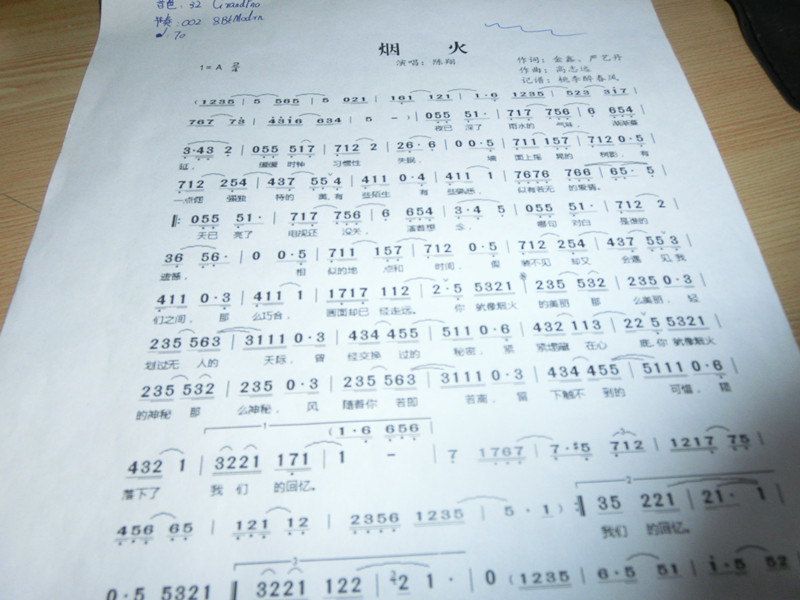 音色:32 GrandPno
节奏:002 8BtModrn
♩:70
烟 火
1=A 2/4
演唱:陈翔
作词:金鑫、严艺丹
作曲:高志远
记谱:桃李醉春风
(1235 | 5 565 | 5 021 | 161 121 | 1·6 1235 | 523 317 |
767 72 | 4246 634 | 5 - ) | 055 51· | 717 756 | 6 654 |
夜已 深了 甜水的 气味 渐渐蔓
3·43 2 | 055 517 | 712 2 | 26· 6 | 0 0·5 | 711 157 | 712 0·5 |
延, 缓缓 时钟 习惯性 失眠, 墙 面上摇 晃的 树影, 有
712 254 | 437 554 | 411 0·4 | 411 1 | 7676 766 | 65· 5 |
一点倔 强独 特的 美,有 些陌生 有 些熟悉, 似有若无 的爱情。
‖: 055 51· | 717 756 | 6 654 | 3·4 5 | 055 51· | 712 2 |
天已 亮了 电视还 没关, 演着想 念, 哪句 对白 是谁的
36 56· | 0 0·5 | 711 157 | 712 0·5 | 712 254 | 437 553 |
遗憾, 相 似的地 点和 时间, 爱 转不见 却又 会遇 见,我
411 0·3 | 411 1 | 1717 112 | 2·5 5321 | 235 532 | 235 0·3 |
们之间, 那 么巧合, 画面却已 经走远。 你 就像烟火 的美丽 那 么美丽, 轻
235 563 | 3111 0·3 | 434 455 | 511 0·6 | 432 113 | 22 5 5321 |
划过无 人的 天际, 曾 经交换 过的 秘密, 紧 紧埋藏 在心 底,你 就像烟火
235 532 | 235 0·3 | 235 563 | 3111 0·3 | 434 455 | 5111 0·6 |
的神秘 那 么神秘, 风 随着你 若即 若离, 留 下触不 到的 可惜, 错
(1·6 656 |
432 1 | 3221 171 | 1 - | 7 1767 | 7·#5 712 | 1217 75 |
落下了 我 们 的回忆。
456 65 | 121 12 | 2356 1235 | 5 · 1 ) :‖ 35 221 | 21· 1 |
我们 的回忆。
0·5 5321 ‖ 3221 122 | 2 1 · | 0 (1235 | 6·5 51 | i·5 52